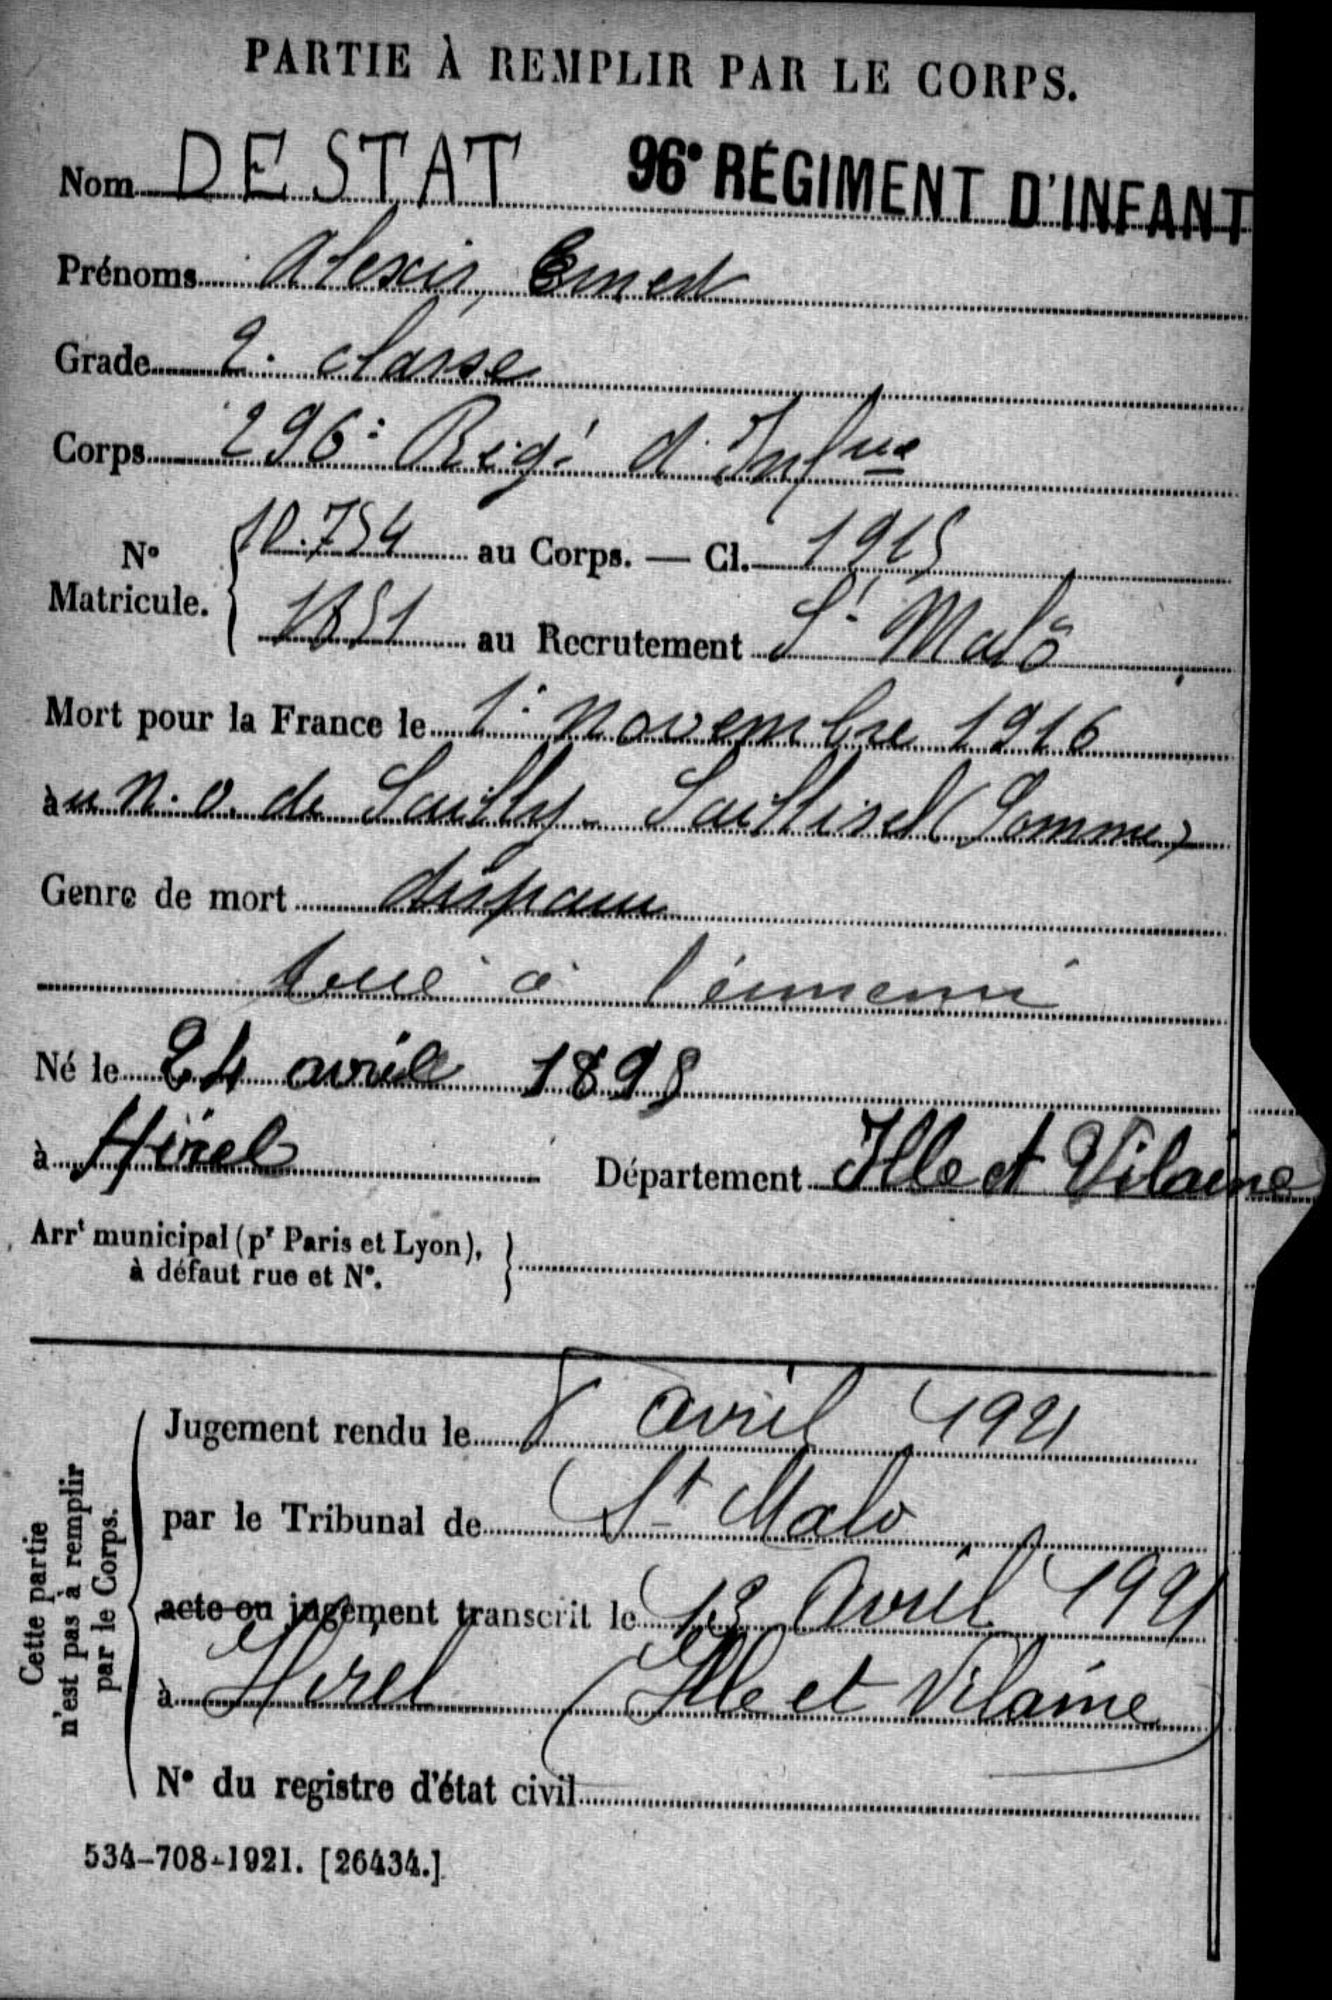 PARTIE À REMPLIR PAR LE CORPS.
Nom DESTAT 96e RÉGIMENT D'INFANT
Prénoms Alexis, Ernest
Grade 2e classe
Corps 296e Régt d'Infrie
No Matricule. { 10.754 au Corps. — Cl. 1915
1851 au Recrutement St Malo
Mort pour la France le 1er Novembre 1916
au N.O. de Sailly-Saillisel (Somme)
Genre de mort disparu
tué à l'ennemi
Né le 24 avril 1895
à Hirel Département Ille et Vilaine
Arrt municipal (pr Paris et Lyon), à défaut rue et No. }
Cette partie n'est pas à remplir par le Corps.
Jugement rendu le 8 avril 1921
par le Tribunal de St Malo
acte ou jugement transcrit le 13 avril 1921
à Hirel (Ille et Vilaine)
No du registre d'état civil
534-708-1921. [26434.]